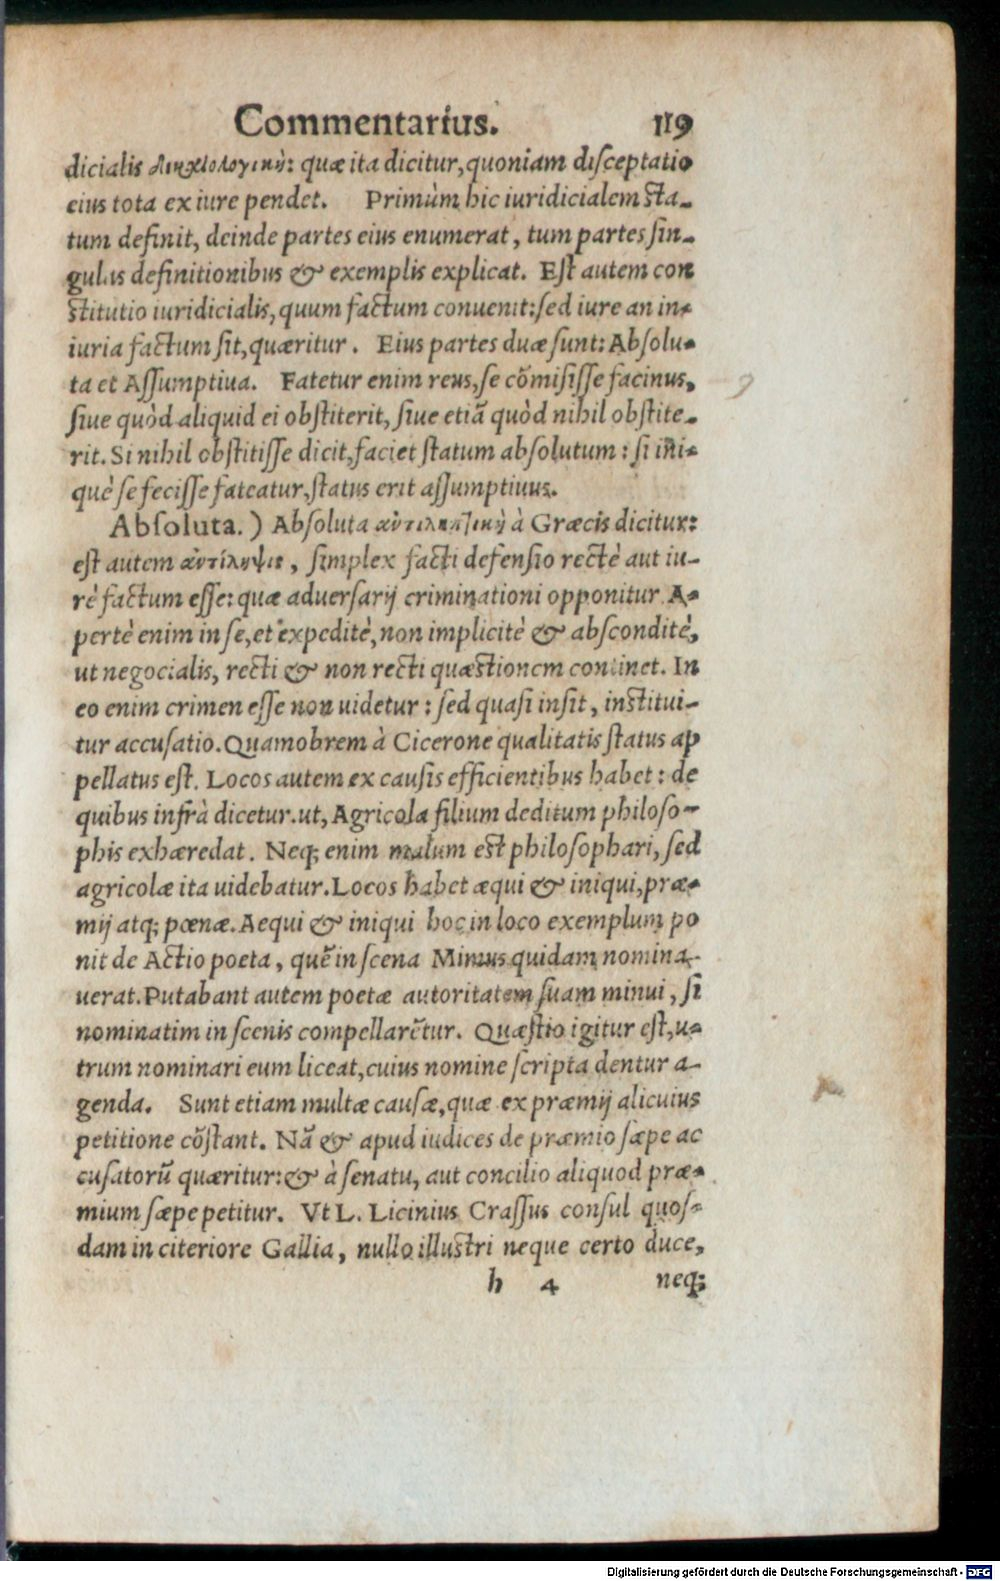 Commentarius. 119
dicialis δικαιολογική: quæ ita dicitur, quoniam disceptatio
eius tota ex iure pendet. Primùm hic iuridicialem sta-
tum definit, deinde partes eius enumerat, tum partes sin-
gulas definitionibus & exemplis explicat. Est autem con
stitutio iuridicialis, quum factum conuenit: sed iure an in-
iuria factum sit, quæritur. Eius partes duæ sunt: Absolu-
ta et Assumptiua. Fatetur enim reus, se cõmisisse facinus,
siue quòd aliquid ei obstiterit, siue etiã quòd nihil obstite-
rit. Si nihil obstitisse dicit, faciet statum absolutum: si ini-
què se fecisse fateatur, status erit assumptiuus.
Absoluta.) Absoluta ἀντιληπτικὴ à Græcis dicitur:
est autem ἀντίληψις, simplex facti defensio rectè aut iu-
rè factum esse: quæ aduersarij criminationi opponitur. A-
pertè enim in se, et expeditè, non implicitè & absconditè,
ut negocialis, recti & non recti quæstionem continet. In
eo enim crimen esse non uidetur: sed quasi insit, institui-
tur accusatio. Quamobrem à Cicerone qualitatis status ap
pellatus est. Locos autem ex causis efficientibus habet: de
quibus infrà dicetur. ut, Agricola filium deditum philoso-
phis exhæredat. Neq; enim malum est philosophari, sed
agricolæ ita uidebatur. Locos habet æqui & iniqui, præ-
mij atq; pœnæ. Aequi & iniqui hoc in loco exemplum po
nit de Actio poeta, quẽ in scena Mimus quidam nomina-
uerat. Putabant autem poetæ autoritatem suam minui, si
nominatim in scenis compellarẽtur. Quæstio igitur est, u-
trum nominari eum liceat, cuius nomine scripta dentur a-
genda. Sunt etiam multæ causæ, quæ ex præmij alicuius
petitione cõstant. Nã & apud iudices de præmio sæpe ac
cusatorũ quæritur: & à senatu, aut concilio aliquod præ-
mium sæpe petitur. Vt L. Licinius Crassus consul quos-
dam in citeriore Gallia, nullo illustri neque certo duce,
h 4 neq;
Digitalisierung gefördert durch die Deutsche Forschungsgemeinschaft - DFG